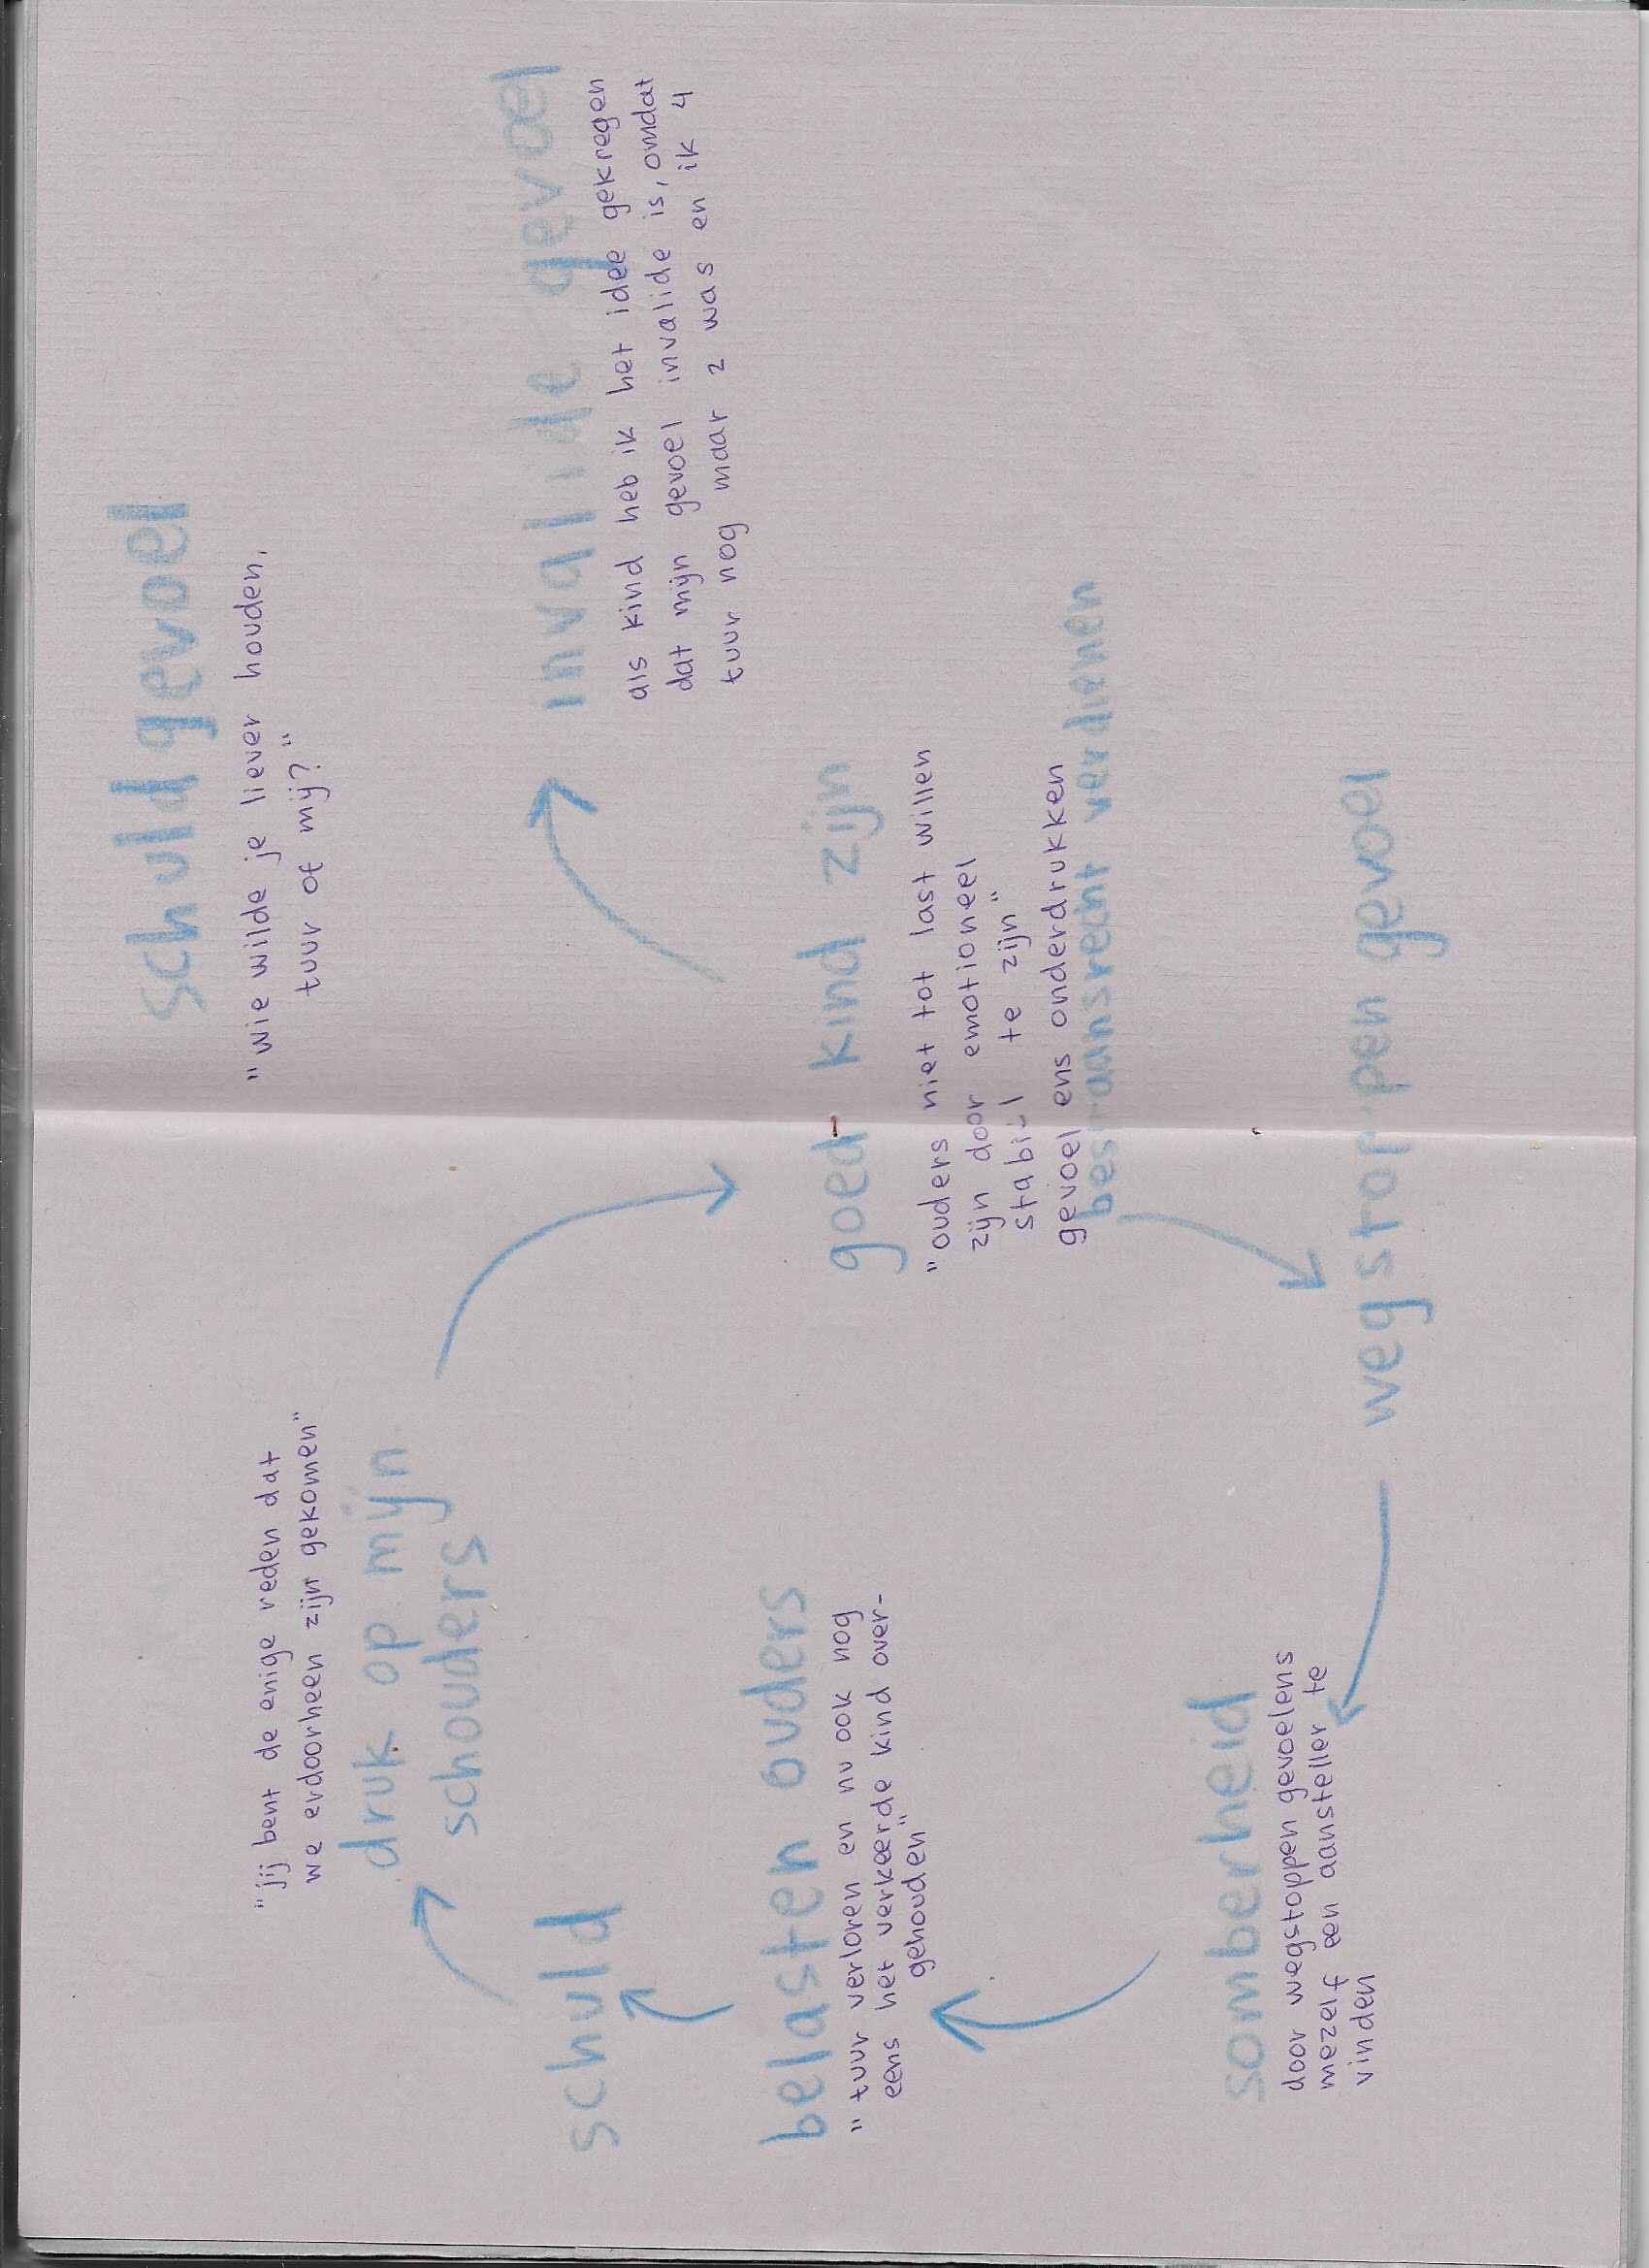 "jij bent de enige reden dat
we erdoorheen zijn gekomen"
druk op mijn
schouders
schuld
belasten ouders
"tuur verloren en nu ook nog
eens het verkeerde kind over-
gehouden"
somberheid
door wegstoppen gevoelens
mezelf een aansteller te
vinden
schuldgevoel
"wie wilde je liever houden,
tuur of mij?"
invalide gevoel
als kind heb ik het idee gekregen
dat mijn gevoel invalide is, omdat
tuur nog maar 2 was en ik 4
goed kind zijn
"ouders niet tot last willen
zijn door emotioneel
stabiel te zijn"
gevoel ens onderdrukken
bestaansrecht verdienen
wegstoppen gevoel